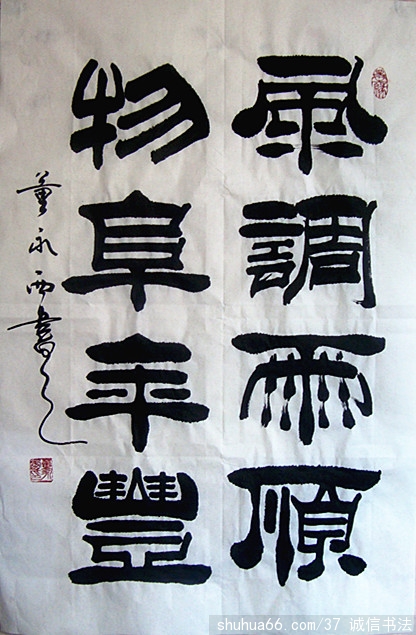 風調雨順
物阜年豐
董永西書之
shuhua66.com/37 诚信书法